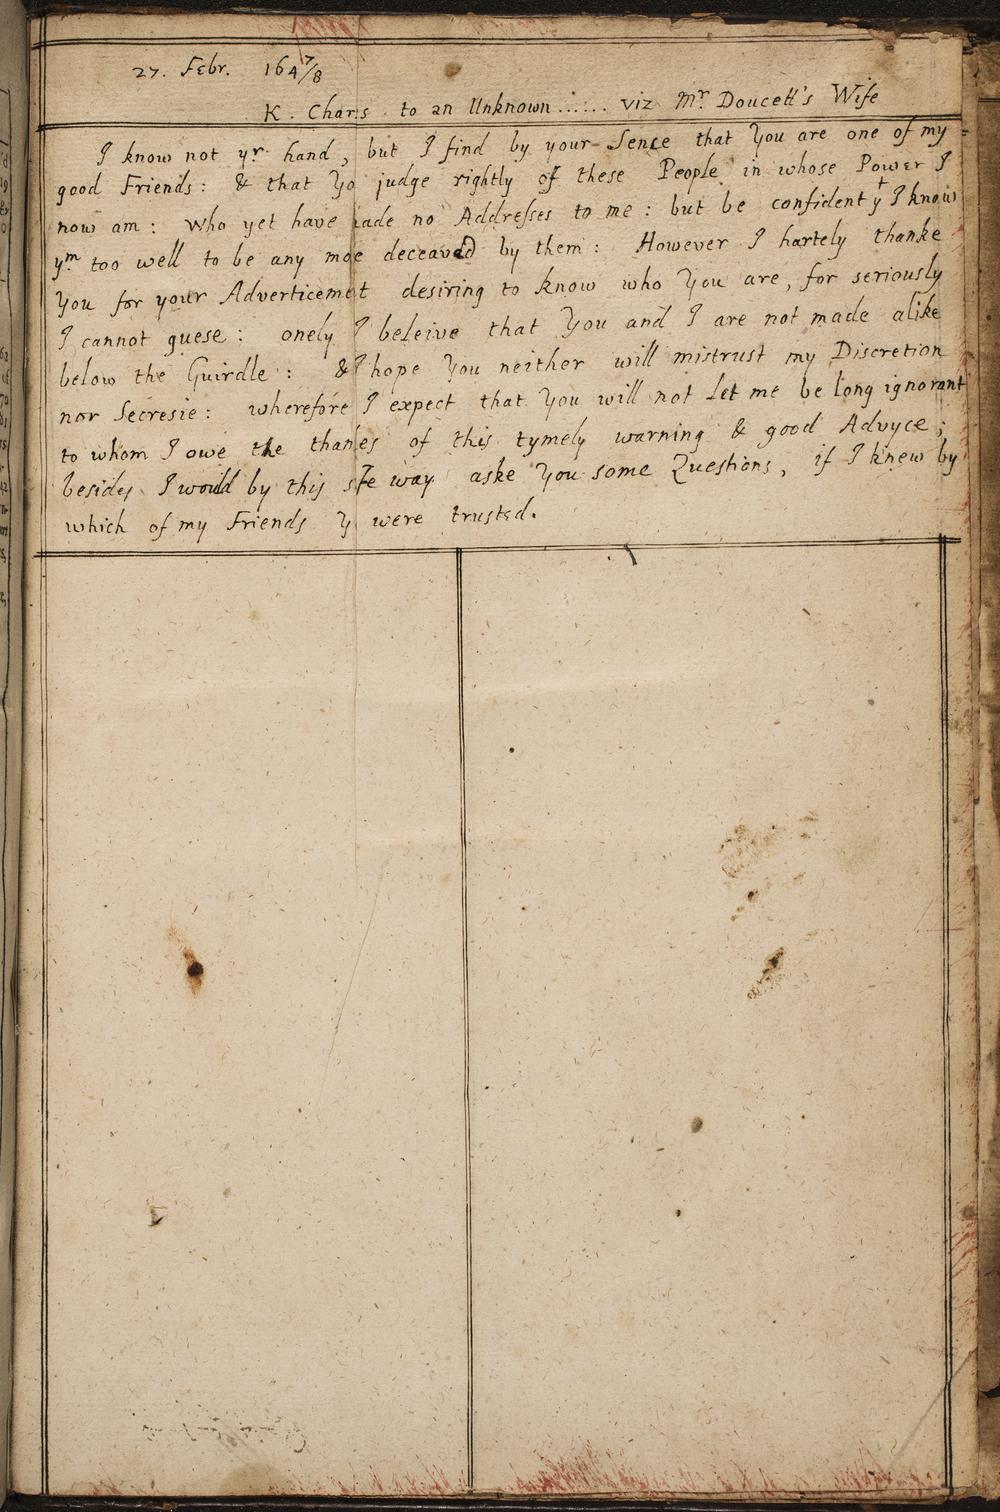 27. Febr. 164 7/8
K. Charls to an Unknown ...... viz Mr. Doucett's Wife
I know not yr hand, but I find by your Sence that You are one of my
good Friends: & that Yo judge rightly of these People in whose Power I
now am: Who yet have made no Addresses to me: but be confident yt I know
ym too well to be any moe deceaved by them: However I hartely thanke
You for your Adverticement desiring to know who You are, for seriously
I cannot guese: onely I beleive that You and I are not made alike
below the Guirdle: & I hope You neither will mistrust my Discretion
nor Secresie: wherefore I expect that You will not Let me be long ignorant
to whom I owe the thankes of this tymely warning & good Advyce;
besides I would by this safe way aske You some Questions, if I knew by
which of my Friends Y were trusted.